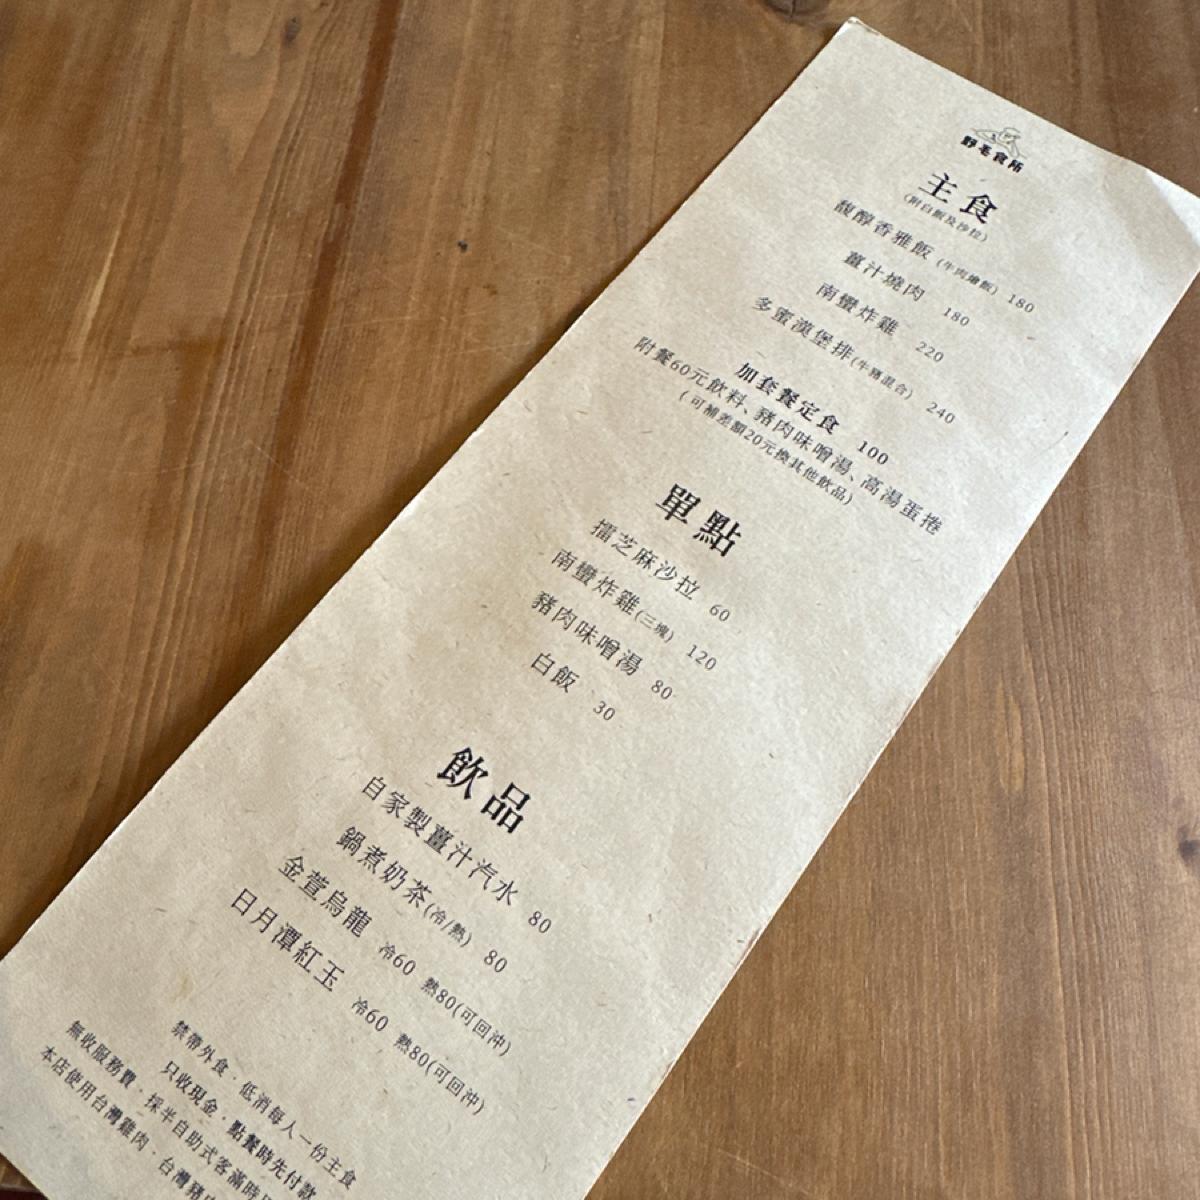 野毛食所
主食
(附白飯及沙拉)
馥醇香雅飯 (牛肉燴飯) 180
薑汁燒肉 180
南蠻炸雞 220
多蜜漢堡排(牛豬混合) 240
加套餐定食 100
附餐60元飲料、豬肉味噌湯、高湯蛋捲
(可補差額20元換其他飲品)
單點
擂芝麻沙拉 60
南蠻炸雞(三塊) 120
豬肉味噌湯 80
白飯 30
飲品
自家製薑汁汽水 80
鍋煮奶茶(冷/熱) 80
金萱烏龍 冷60 熱80(可回沖)
日月潭紅玉 冷60 熱80(可回沖)
禁帶外食・低消每人一份主食
只收現金・點餐時先付款
無收服務費・採半自助式客滿時
本店使用台灣雞肉・台灣豬